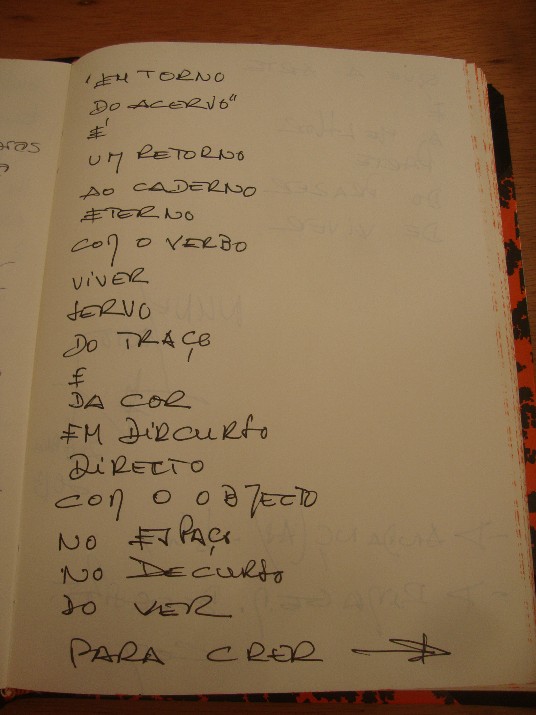 "EM TORNO
DO ACERVO"
É
UM RETORNO
AO CADERNO
ETERNO
COM O VERBO
VIVER
SERVO
DO TRAÇO
E
DA COR
EM DISCURSO
DIRECTO
COM O OBJECTO
NO ESPAÇO
NO DECURSO
DO VER
PARA CRER →